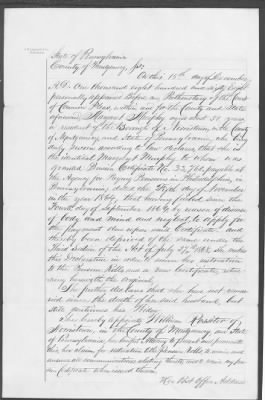 State of Pennsylvania
County of Montgomery, ss:
On this 15th day of December
A.D. One thousand eight hundred and sixty Eight
personally appeared before me Prothonotary of the Court
of Common Pleas, within and for the County and State
aforesaid, Margaret Murphy aged about 51 years
a resident of the Borough of Norristown, in the County
of Montgomery and State of Pennsylvania, who being
duly sworn according to law declares that she is
the identical Margaret Murphy to whom was
granted Pension Certificate No. 33,762 payable at
the Agency for Paying Pensions in Philadelphia,
Pennsylvania, dated the First day of November
in the year 1864, that having failed since the
Fourth day of September 1865 by reason of disease
of body and mind and neglect to apply for
the payment due upon said Certificate and
thereby been deprived of the same under the
Third section of the Act of July 27th 1868 She makes
this Declaration in order to secure her restoration
to the Pension Rolls and a new Certificate
the original,
She further declares that she has not
since the death of her said husband, but
still continues his Widow,
She hereby appoints William
Norristown, in the County of Montgomery and State
of Pennsylvania, her lawful Attorney to present and prosecute
this her claim for restoration to the Pension Rolls to
all communications

Her Post Office Address